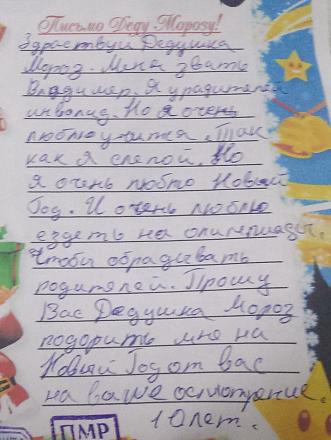 Письмо Деду Морозу!
Здраствуй Дедушка
Мороз. Меня звать
Владимер. Я у радителей
инволид. Но я очень
люблю учится. Так
как я слепой. Но
я очень люблю Новый
Год. И очень люблю
ездеть на олимпиады.
Чтобы обрадывать
родителей. Прошу
Вас Дедушка Мороз
подорить мне на
Новый Год от вас
на ваше
10 лет.
ПМР